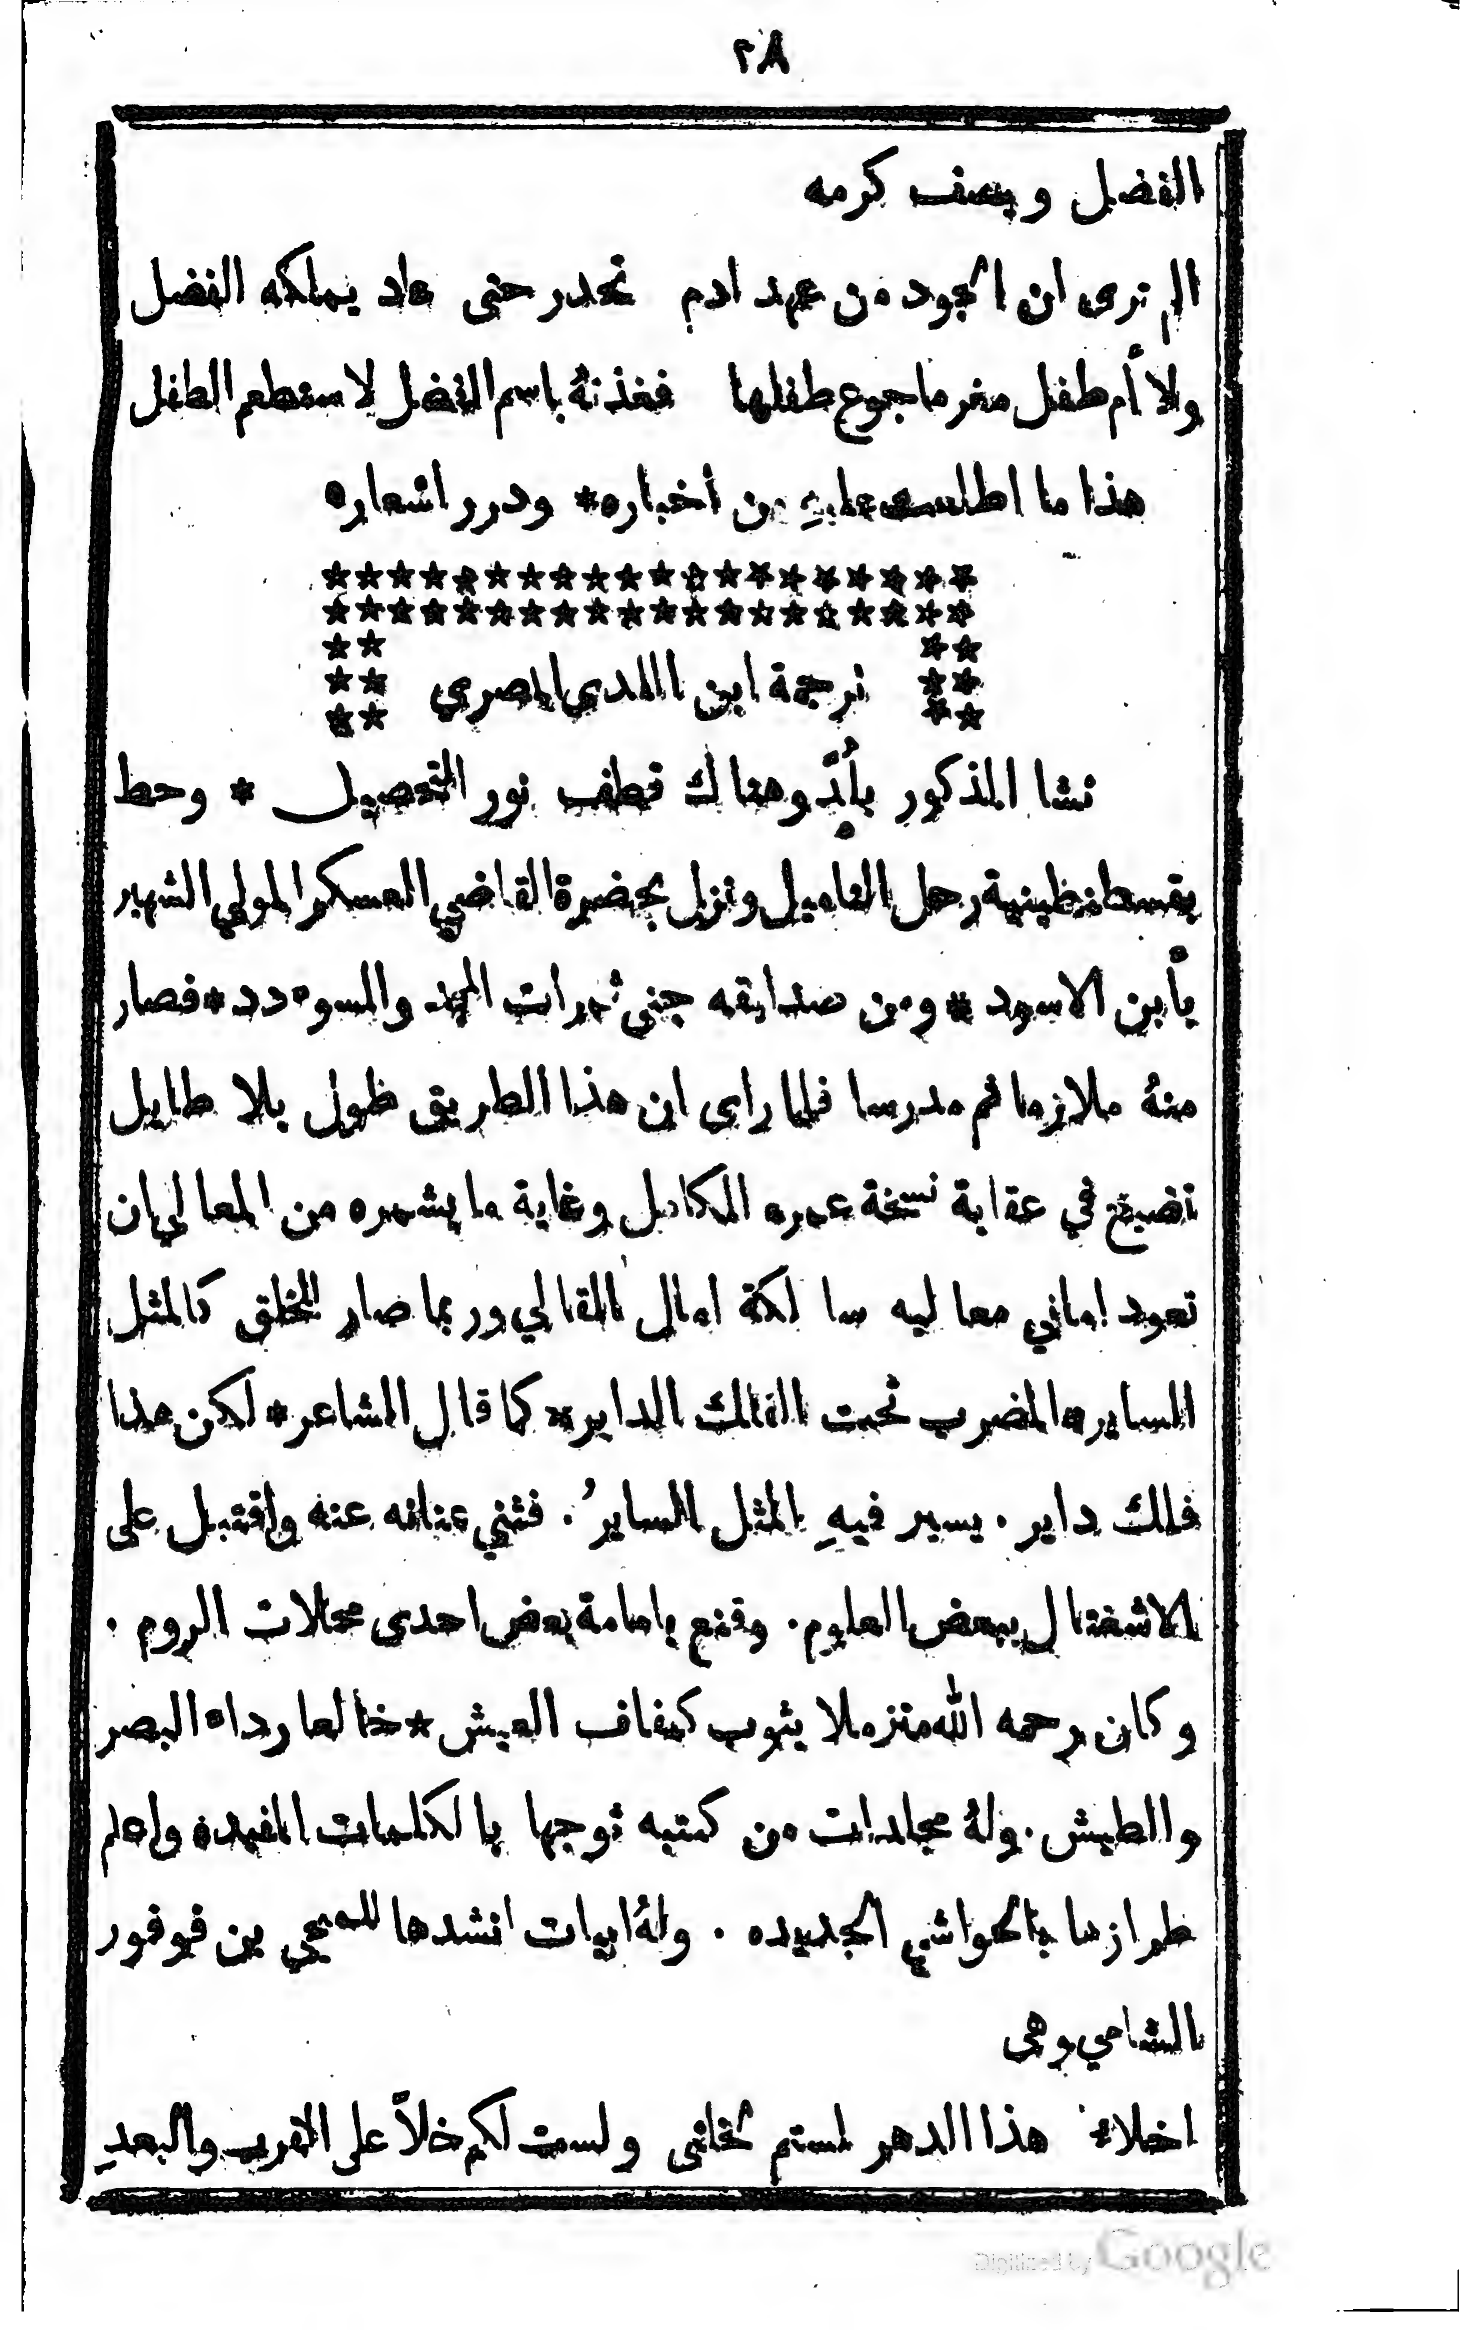 ٢٨
الفضل ويصف كرمه
الم ترى ان الجود من عهد ادم تحدر حتى عاد يملكه الفضل
ولا أم طفل مفر ما جوع طفلها فغذته باسم الفضل لاستطعم الطفل
هذا ما اطلست عليهِ من اخباره* ودرر اشعاره
ترجمة ابن المصري
نشا المذكور وهناك قطف نور التحصيل * وحط
بقسطنطينية رحل التاميل ونزل بحضرة القاضي العسكر المولي الشهير
بأبن الاسود * ومن حدايقه جني ثمرات المجد والسوءدد * فصار
منهُ ملازما ثم مدرسا فلما راى ان هذا الطريق طول بلا طايل
تضيع في عقابة نسخة عمره الكامل وغاية ما يثمره من المعالي ان
تعود اماني معاليه سالكة امال القالي وربما صار الخلق كالمثل
الساير * المضرب تحت الفلك الداير * كما قال الشاعر * لكن هذا
فلك داير . يسير فيهِ المثل السايرُ . فثني عنانه عنه واقتبل على
الاشغتال ببعض العلوم . وقنع بامامة بعض احدى محلات الروم .
وكان رحمه الله متزملا بثوب كفاف العيش * خالعا رداء البصر
والطيش . ولهُ مجلدات من كتبه توجها بالكلمات المفيده واعلم
طرازها بالحواشي الجديده . ولهُ ابيات انشدها للمحبي بن فرفور
الشامي وهى
اخلاء هذا الدهر لستم كخاني ولست لكم خلاً على القرب والبعدِ
Digitized by Google